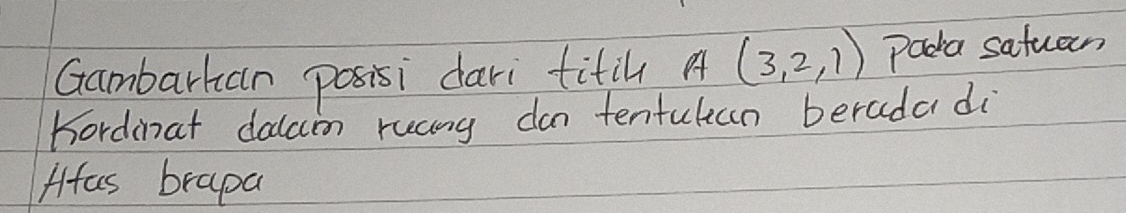 Gambarkan posisi dari titik A (3,2,1) Pada satuan
Kordinat dalam ruang dan tentukan berada di
Atas brapa